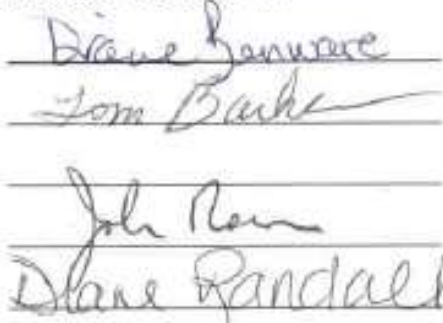 Diane Benware
Tom Barker
John
Diane Randall